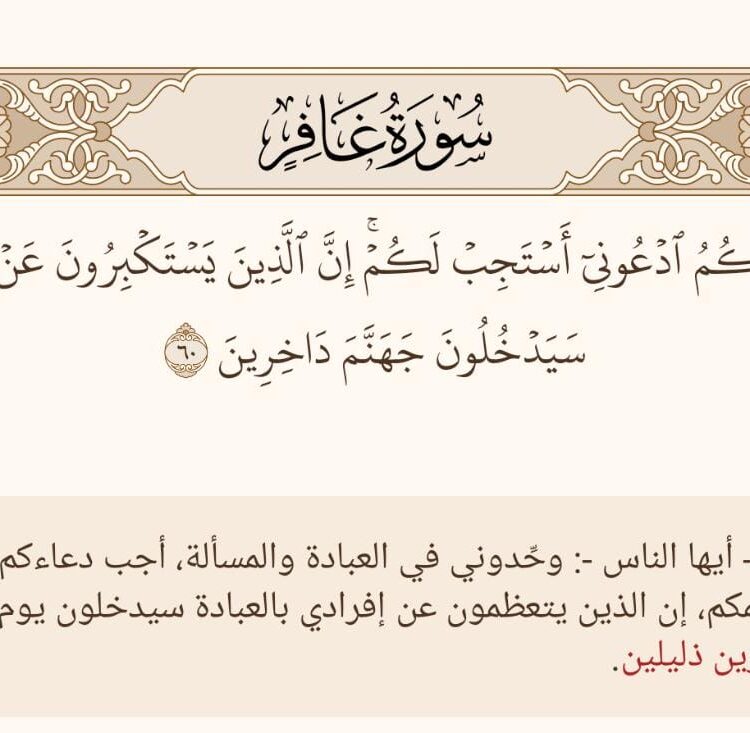 سُورَةُ غَافِرٍ
كُمُ ٱدۡعُونِيٓ أَسۡتَجِبۡ لَكُمۡۚ إِنَّ ٱلَّذِينَ يَسۡتَكۡبِرُونَ عَنۡ
سَيَدۡخُلُونَ جَهَنَّمَ دَاخِرِينَ ٦٠
- أيها الناس -: وحِّدوني في العبادة والمسألة، أجب دعاءكم
مكم، إن الذين يتعظمون عن إفرادي بالعبادة سيدخلون يوم
رين ذليلين.